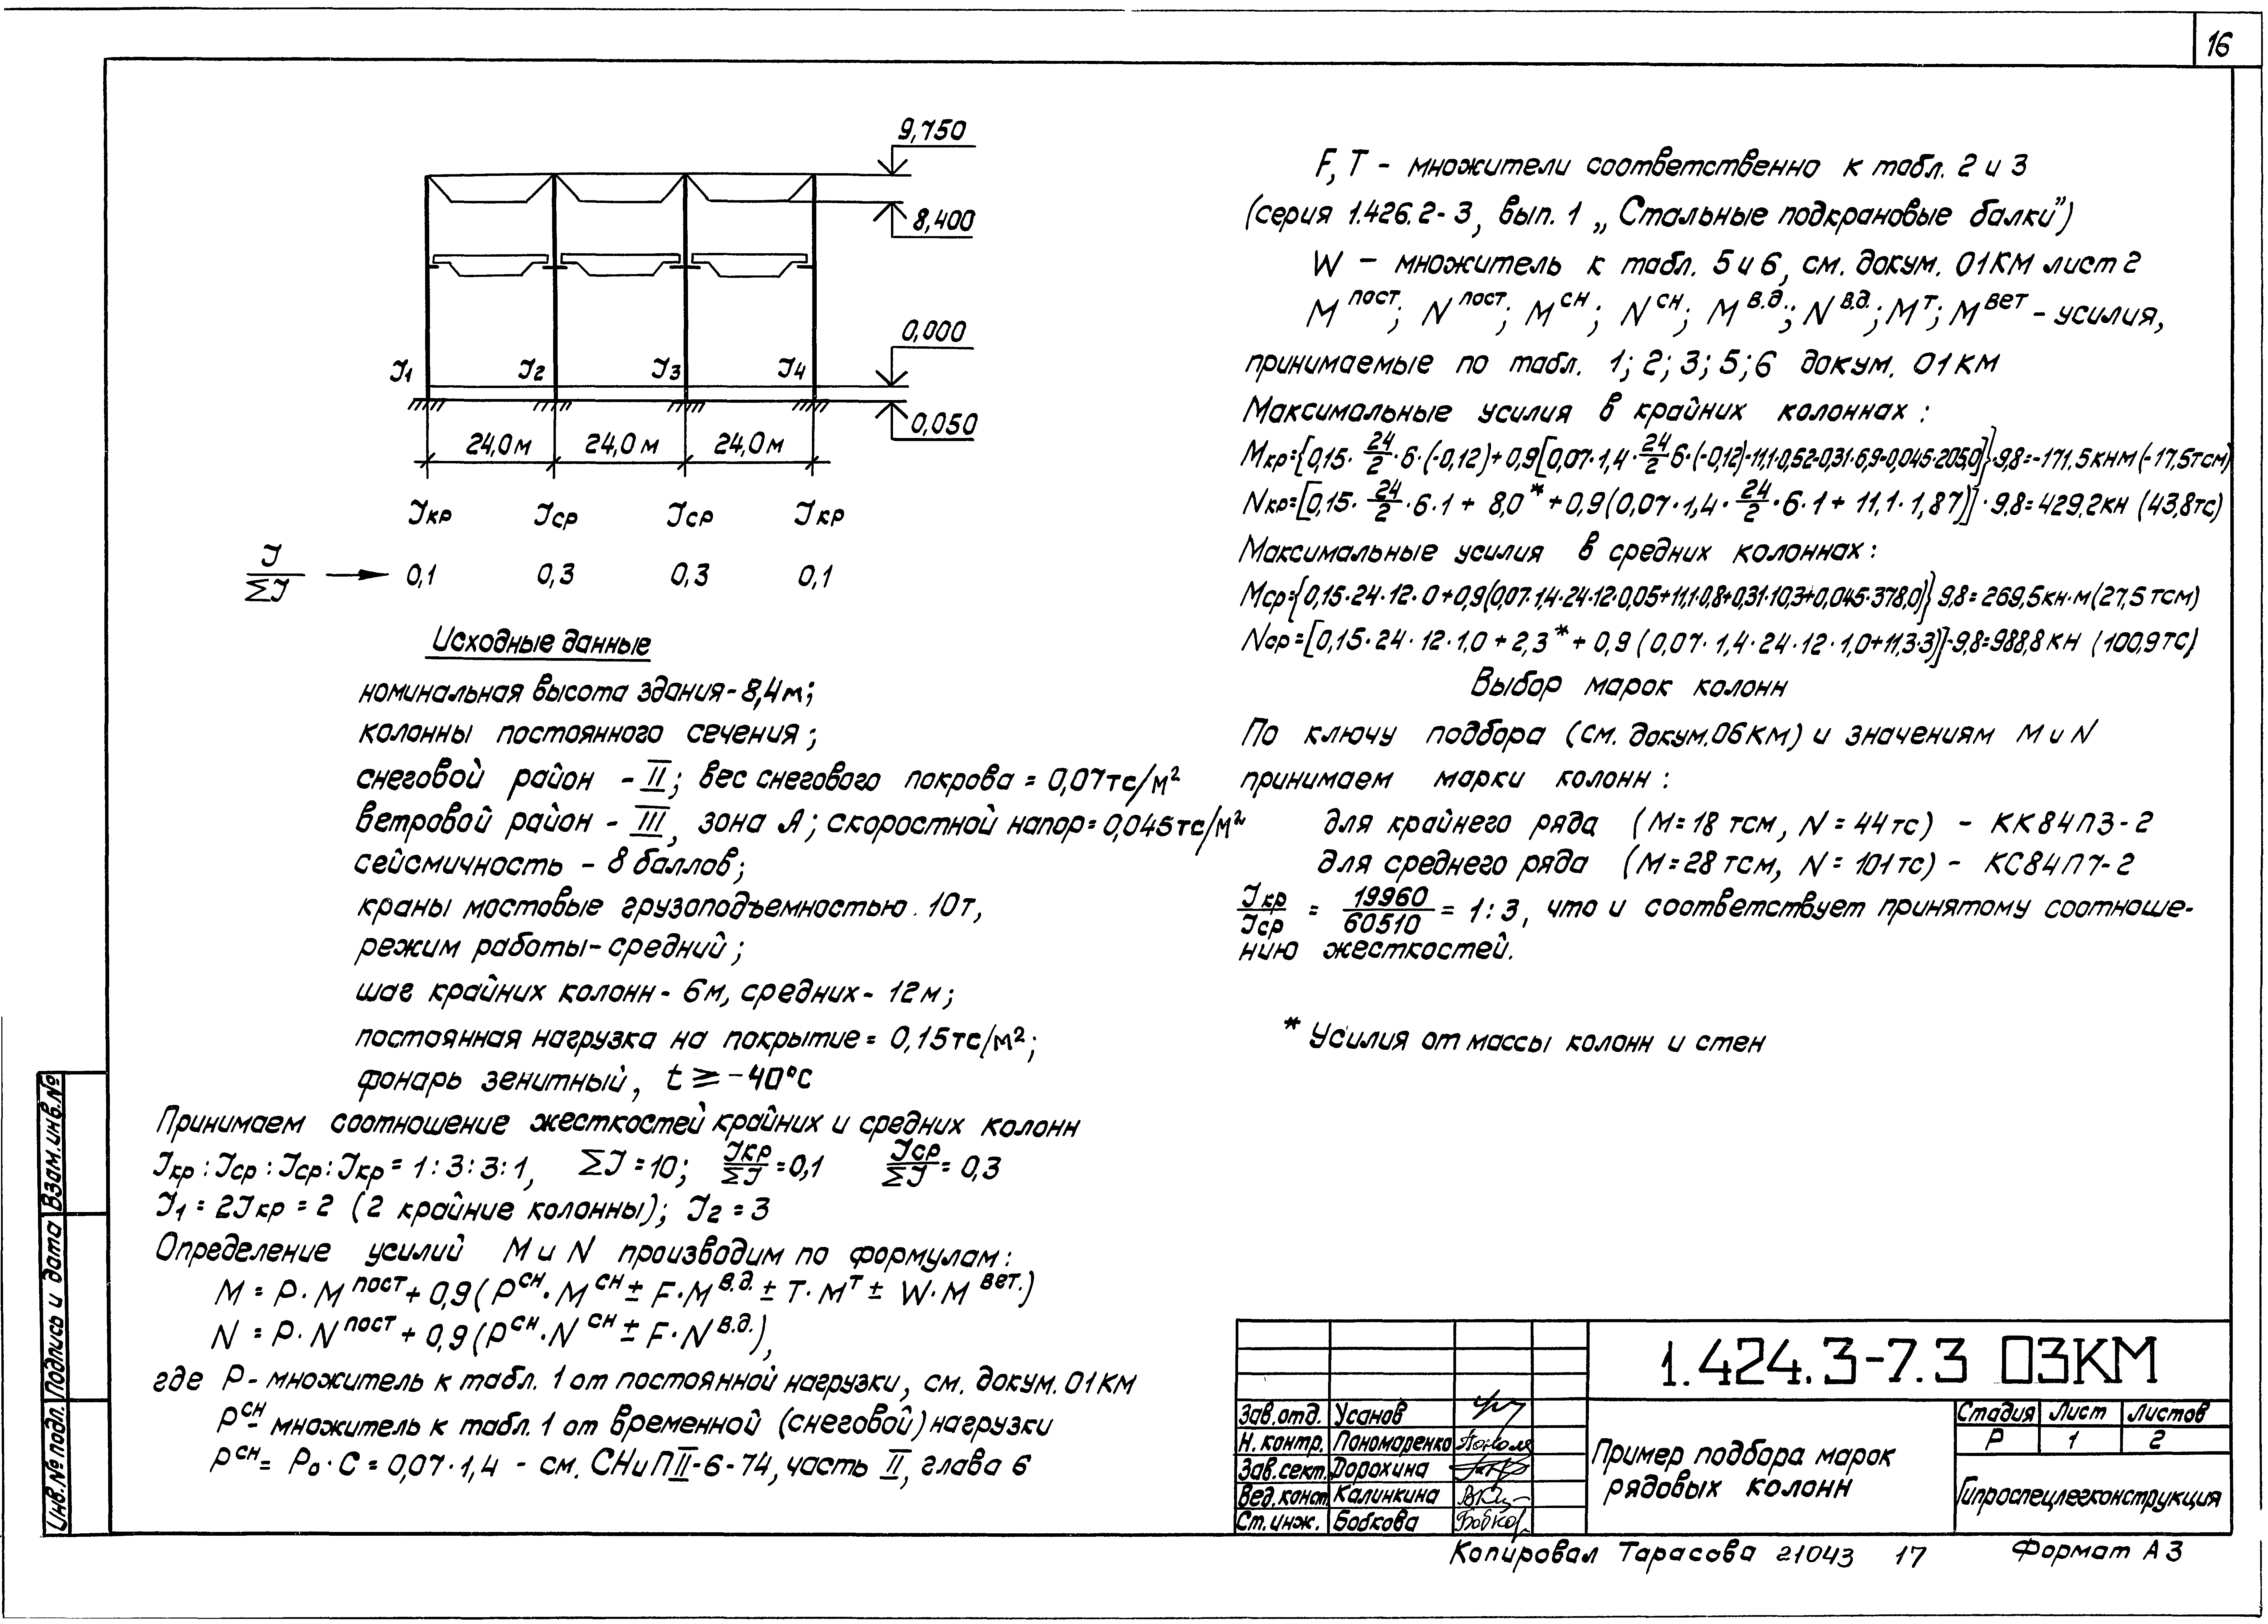 16
9,750
8,400
0,000
0,050
J1 J2 J3 J4
24,0м 24,0м 24,0м
Jкр Jср Jср Jкр
J/ΣJ → 0,1 0,3 0,3 0,1
Исходные данные
номинальная высота здания - 8,4м;
колонны постоянного сечения;
снеговой район - II; вес снегового покрова = 0,07тс/м²
ветровой район - III, зона А; скоростной напор = 0,045тс/м²
сейсмичность - 8 баллов;
краны мостовые грузоподъемностью 10т,
режим работы - средний;
шаг крайних колонн - 6м, средних - 12м;
постоянная нагрузка на покрытие = 0,15тс/м²;
фонарь зенитный, t ≥ -40°С
Принимаем соотношение жесткостей крайних и средних колонн
Jкр : Jср : Jср : Jкр = 1:3:3:1, ΣJ = 10; Jкр/ΣJ = 0,1 Jср/ΣJ = 0,3
J1 = 2Jкр = 2 (2 крайние колонны); J2 = 3
Определение усилий М и N производим по формулам:
M = P·M^пост + 0,9(P^сн·M^сн ± F·M^в.д. ± T·M^т ± W·M^вет.)
N = P·N^пост + 0,9(P^сн·N^сн ± F·N^в.д.),
где P - множитель к табл. 1 от постоянной нагрузки, см. докум. 01КМ
P^сн - множитель к табл. 1 от временной (снеговой) нагрузки
P^сн = P₀·C = 0,07·1,4 - см. СНиП II-6-74, часть II, глава 6
F, T - множители соответственно к табл. 2 и 3
(серия 1.426.2-3, вып. 1 „Стальные подкрановые балки”)
W - множитель к табл. 5 и 6, см. докум. 01КМ лист 2
M^пост; N^пост; M^сн; N^сн; M^в.д.; N^в.д.; M^т; M^вет - усилия,
принимаемые по табл. 1; 2; 3; 5; 6 докум. 01КМ
Максимальные усилия в крайних колоннах:
Mкр={0,15·24/2·6·(-0,12)+0,9[0,07·1,4·24/2·6·(-0,12)-11,1·0,52-0,31·6,9-0,045·205,0]}·9,8=-171,5кнм(-17,5тсм)
Nкр=[0,15·24/2·6·1+8,0*+0,9(0,07·1,4·24/2·6·1+11,1·1,87)]·9,8=429,2кн (43,8тс)
Максимальные усилия в средних колоннах:
Mср={0,15·24·12·0+0,9(0,07·1,4·24·12·0,05+11,1·0,8+0,31·10,3+0,045·378,0)}9,8=269,5кн·м(27,5тсм)
Nср=[0,15·24·12·1,0+2,3*+0,9(0,07·1,4·24·12·1,0+11,3·3)]·9,8=988,8кн (100,9тс)
Выбор марок колонн
По ключу подбора (см. докум. 06КМ) и значениям М и N
принимаем марки колонн:
для крайнего ряда (М=18 тсм, N=44тс) - КК84П3-2
для среднего ряда (М=28 тсм, N=101тс) - КС84П7-2
Jкр/Jср = 19960/60510 = 1:3, что и соответствует принятому соотноше-
нию жесткостей.
* Усилия от массы колонн и стен
Взам.инв.№
Подпись и дата
Инв.№ подл.
1.424.3-7.3 03КМ
Зав.отд. Усанов
Н.контр. Пономаренко
Зав.сект. Дорохина
Вед.конст. Калинкина
Ст.инж. Бобкова
Пример подбора марок
рядовых колонн
Стадия Лист Листов
Р 1 2
Гипроспецлегконструкция
Копировал Тарасова 21043 17 Формат А3